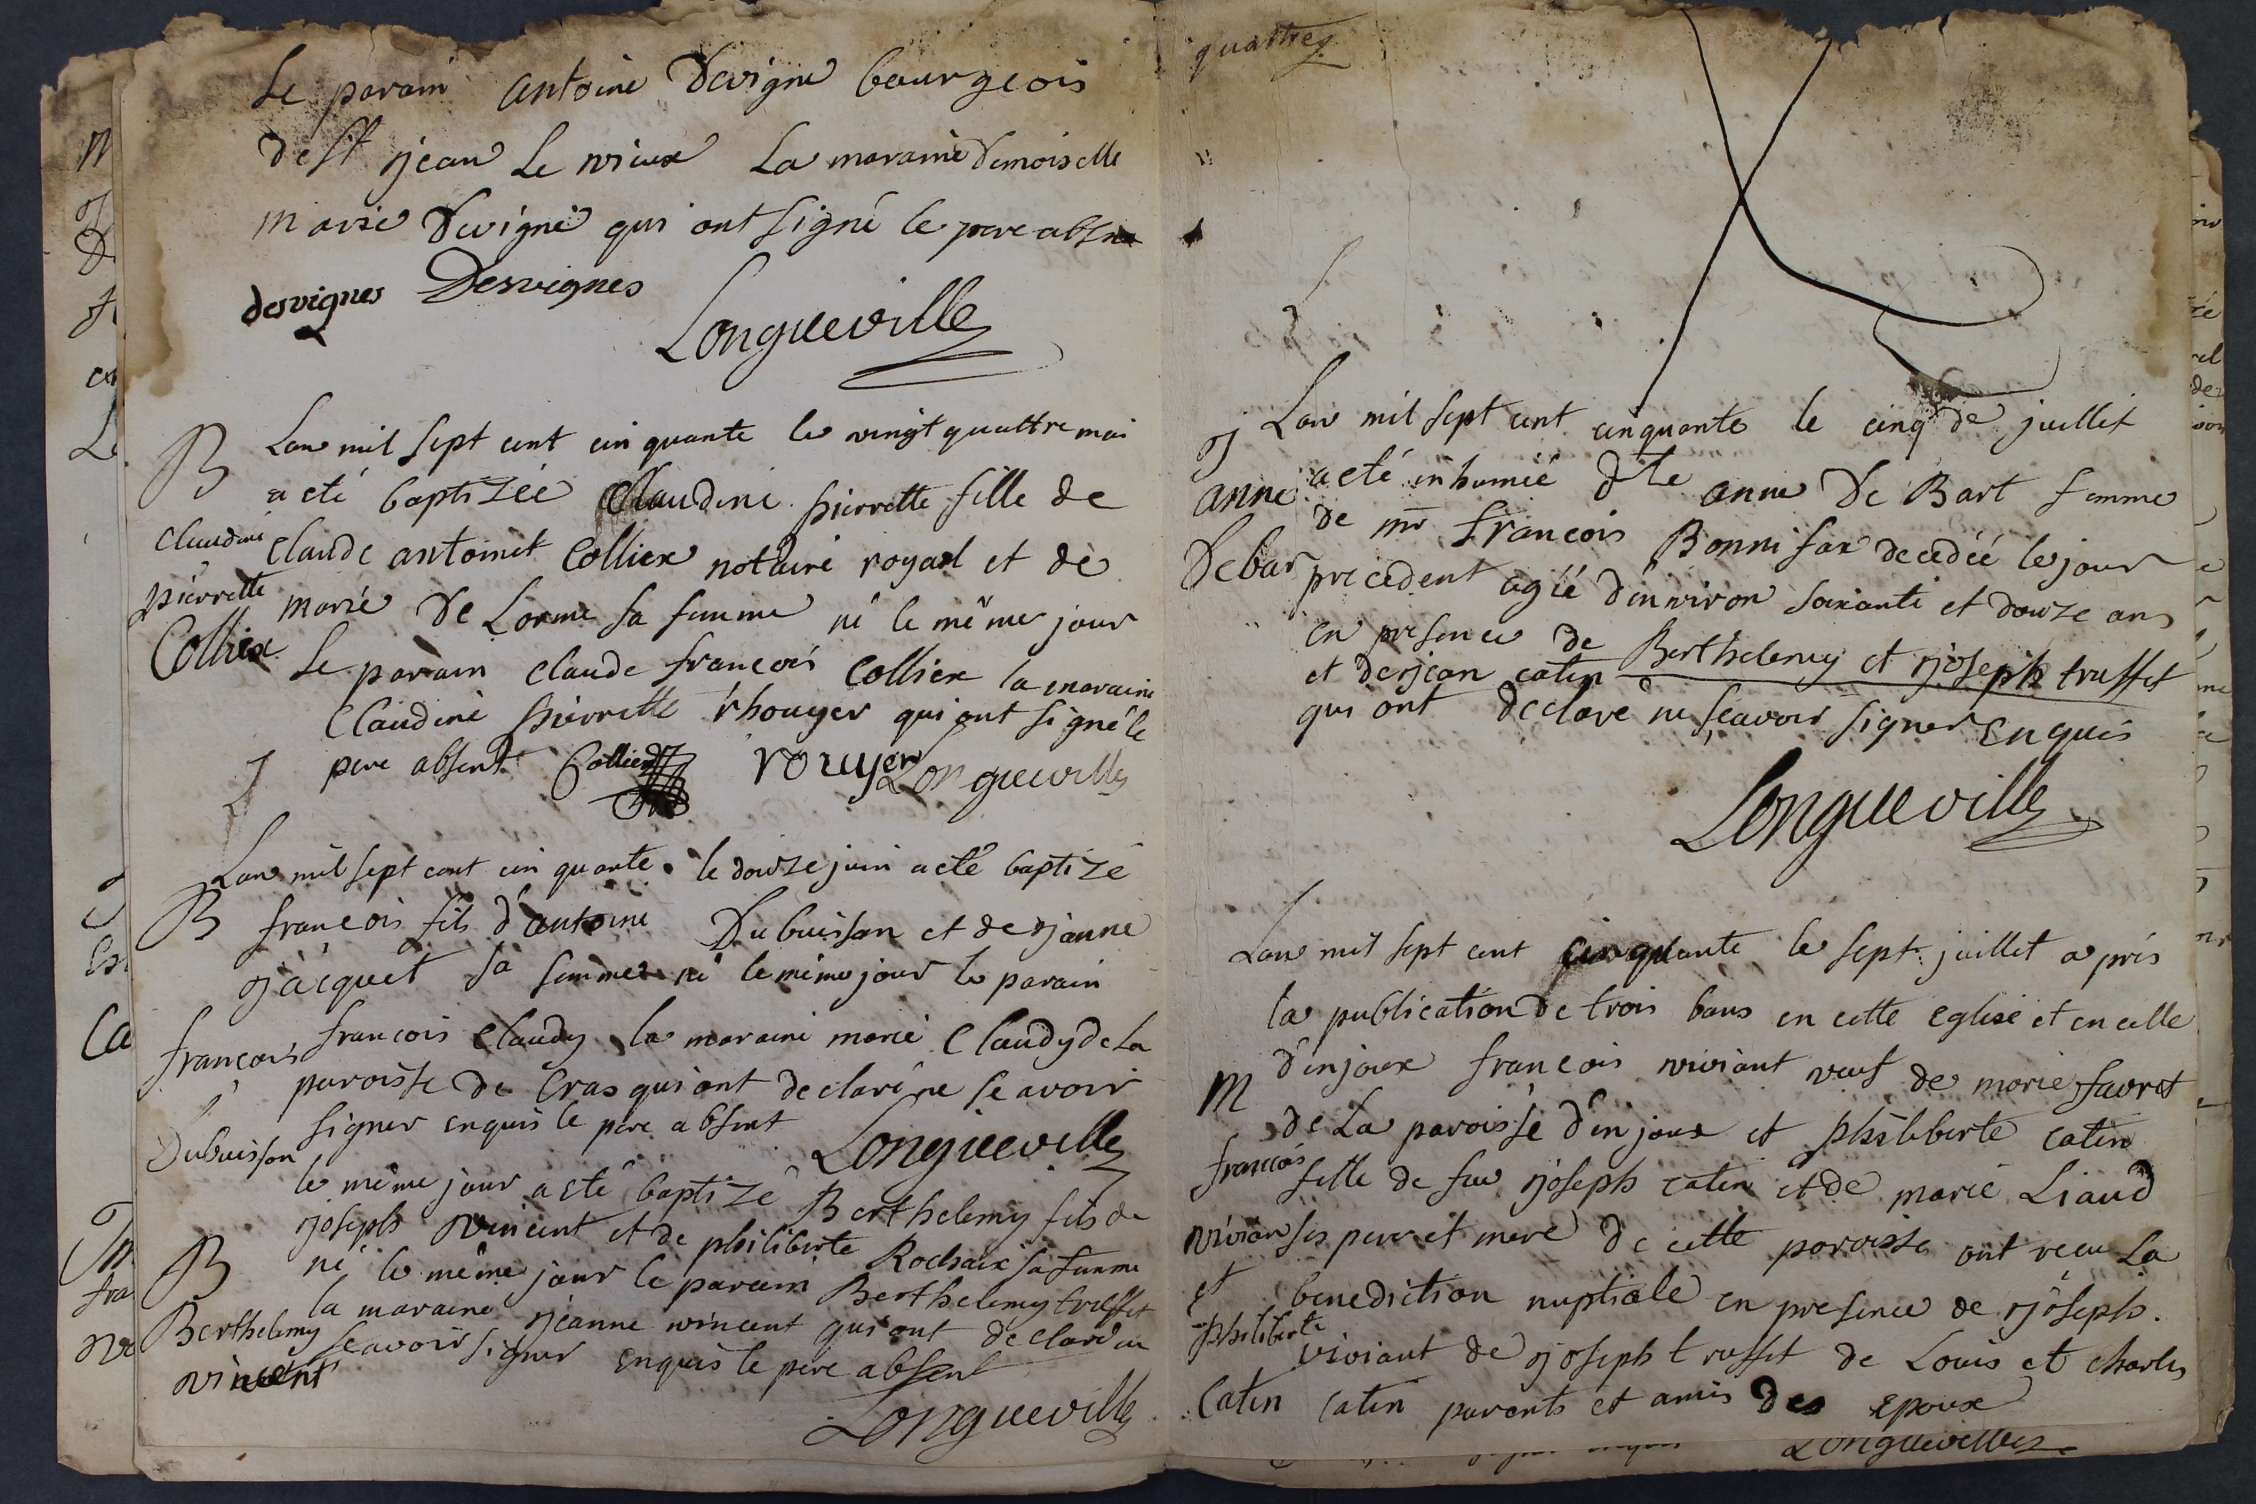 Le parain antoine Devigne bourgeois
de st jean Le vieux La maraine Demoiselle
marie Devigne qui ont signé le pere absent
desvignes Desvignes
Longueville
B
Claudine
pierrette
Collier
Lan mil sept cent cinquante le vingt quattre mai
a eté baptizée Claudine pierrette fille de
claude antoine Collier notaire royal et de
marie De Lorme sa femme né le même jour
Le parain claude francois Collier la maraine
Claudine pierrette rhouyer qui ont signé le
pere absent Collier rouyer Longueville
B
francois
Dubuisson
Lan mil sept cent cinquante le douze juin a eté baptizé
francois fils d'antoine Dubuisson et de jeanne
jacquet sa femme né le même jour le parain
francois Claudy la maraine marie Claudy de La
paroisse de Cras qui ont declaré ne scavoir
signer enquis le pere absent
Longueville
B
Berthelemy
vincent
le même jour a eté baptizé Berthelemy fils de
joseph vincent et de philiberte Rochaix sa femme
né le même jour le parain Berthelemy truffet
la maraine jeanne vincent qui ont declaré ne
scavoir signer enquis le pere absent
Longueville
quattre
anne
Debar
Lan mil sept cent cinquante le cinq de juillet
a eté inhumée dlle anne De Bart femme
de mr francois Bonnifax decedée le jour
precedent agée d'environ soixante et douze ans
en presence de Berthelemy et joseph truffet
et de jean catin
qui ont declaré ne scavoir signer enquis
Longueville
M
francois
vivian
et
philiberte
Catin
Lan mil sept cent cinquante le sept juillet apres
la publication de trois bans en cette eglise et en celle
d'injoux francois viviant veuf de marie favret
de La paroisse d'injoux et philiberte catin
fille de feu joseph catin et de marie Liaud
ses pere et mere de cette paroisse ont recu La
benediction nuptiale en presence de joseph
viviant de joseph truffet de Louis et charles
catin parents et amis des epoux
Longueville